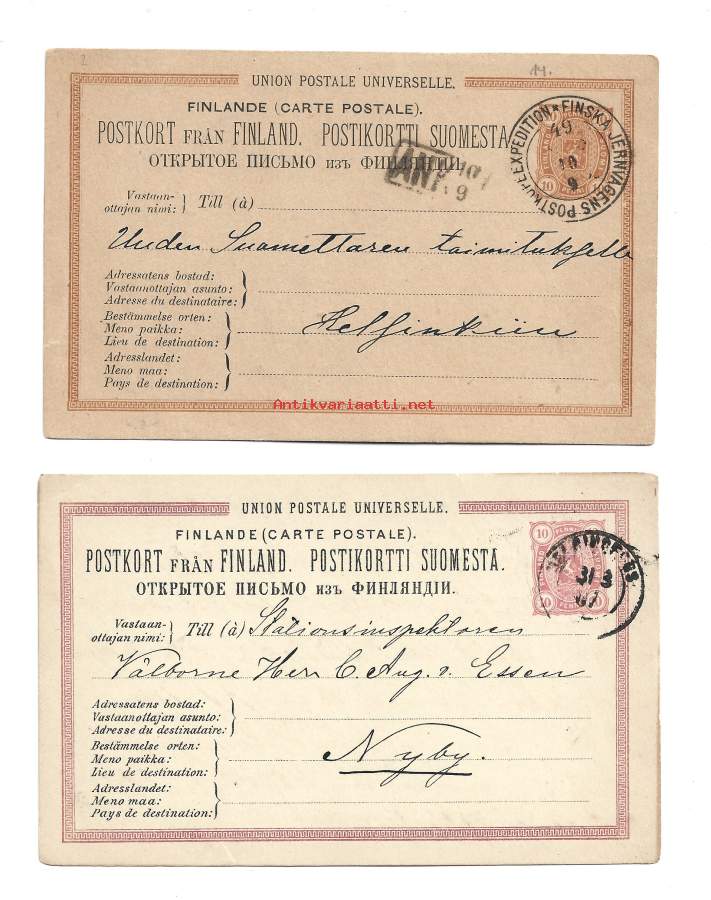 2
14.
UNION POSTALE UNIVERSELLE.
FINLANDE (CARTE POSTALE).
POSTKORT FRÅN FINLAND. POSTIKORTTI SUOMESTA.
ОТКРЫТОЕ ПИСЬМО изъ ФИНЛЯНДІИ.
FINSKA JERNVÄGENS POSTKUPÉEXPEDITION
49
10
9
10
ANK 10/9
Vastaan-
ottajan nimi: Till (à)
Uuden Suomettaren toimitukselle
Adressatens bostad:
Vastaanottajan asunto:
Adresse du destinataire:
Bestämmelse orten:
Meno paikka:
Lieu de destination:
Helsinkiin
Adresslandet:
Meno maa:
Pays de destination:
Antikvariaatti.net
UNION POSTALE UNIVERSELLE.
FINLANDE (CARTE POSTALE).
POSTKORT FRÅN FINLAND. POSTIKORTTI SUOMESTA.
ОТКРЫТОЕ ПИСЬМО изъ ФИНЛЯНДІИ.
10 10
10
HELSINGFORS
31 3
Vastaan-
ottajan nimi: Till (à) Stationsinspektoren
Välborne Herr C. Aug. v. Essen
Adressatens bostad:
Vastaanottajan asunto:
Adresse du destinataire:
Bestämmelse orten:
Meno paikka:
Lieu de destination:
Nyby.
Adresslandet:
Meno maa:
Pays de destination: